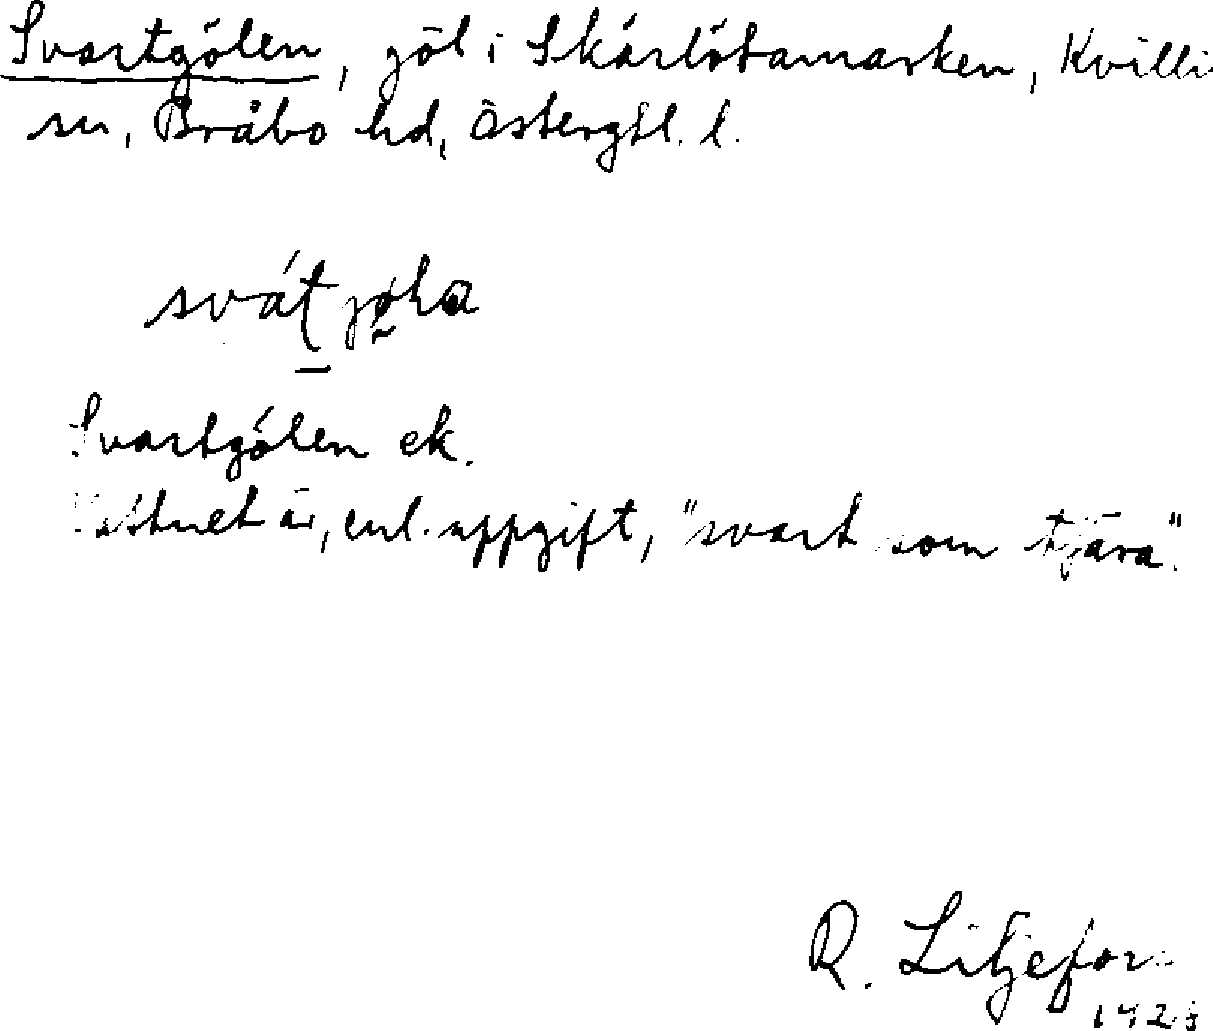 Svartgölen, göl i Skärlötamarken, Kvilli
sn, Bråbo hd, Östergtl. l.
svát jøla
Svartgölen ek.
Vattnet är, enl. uppgift, "svart som tjära".
R. Liljefor